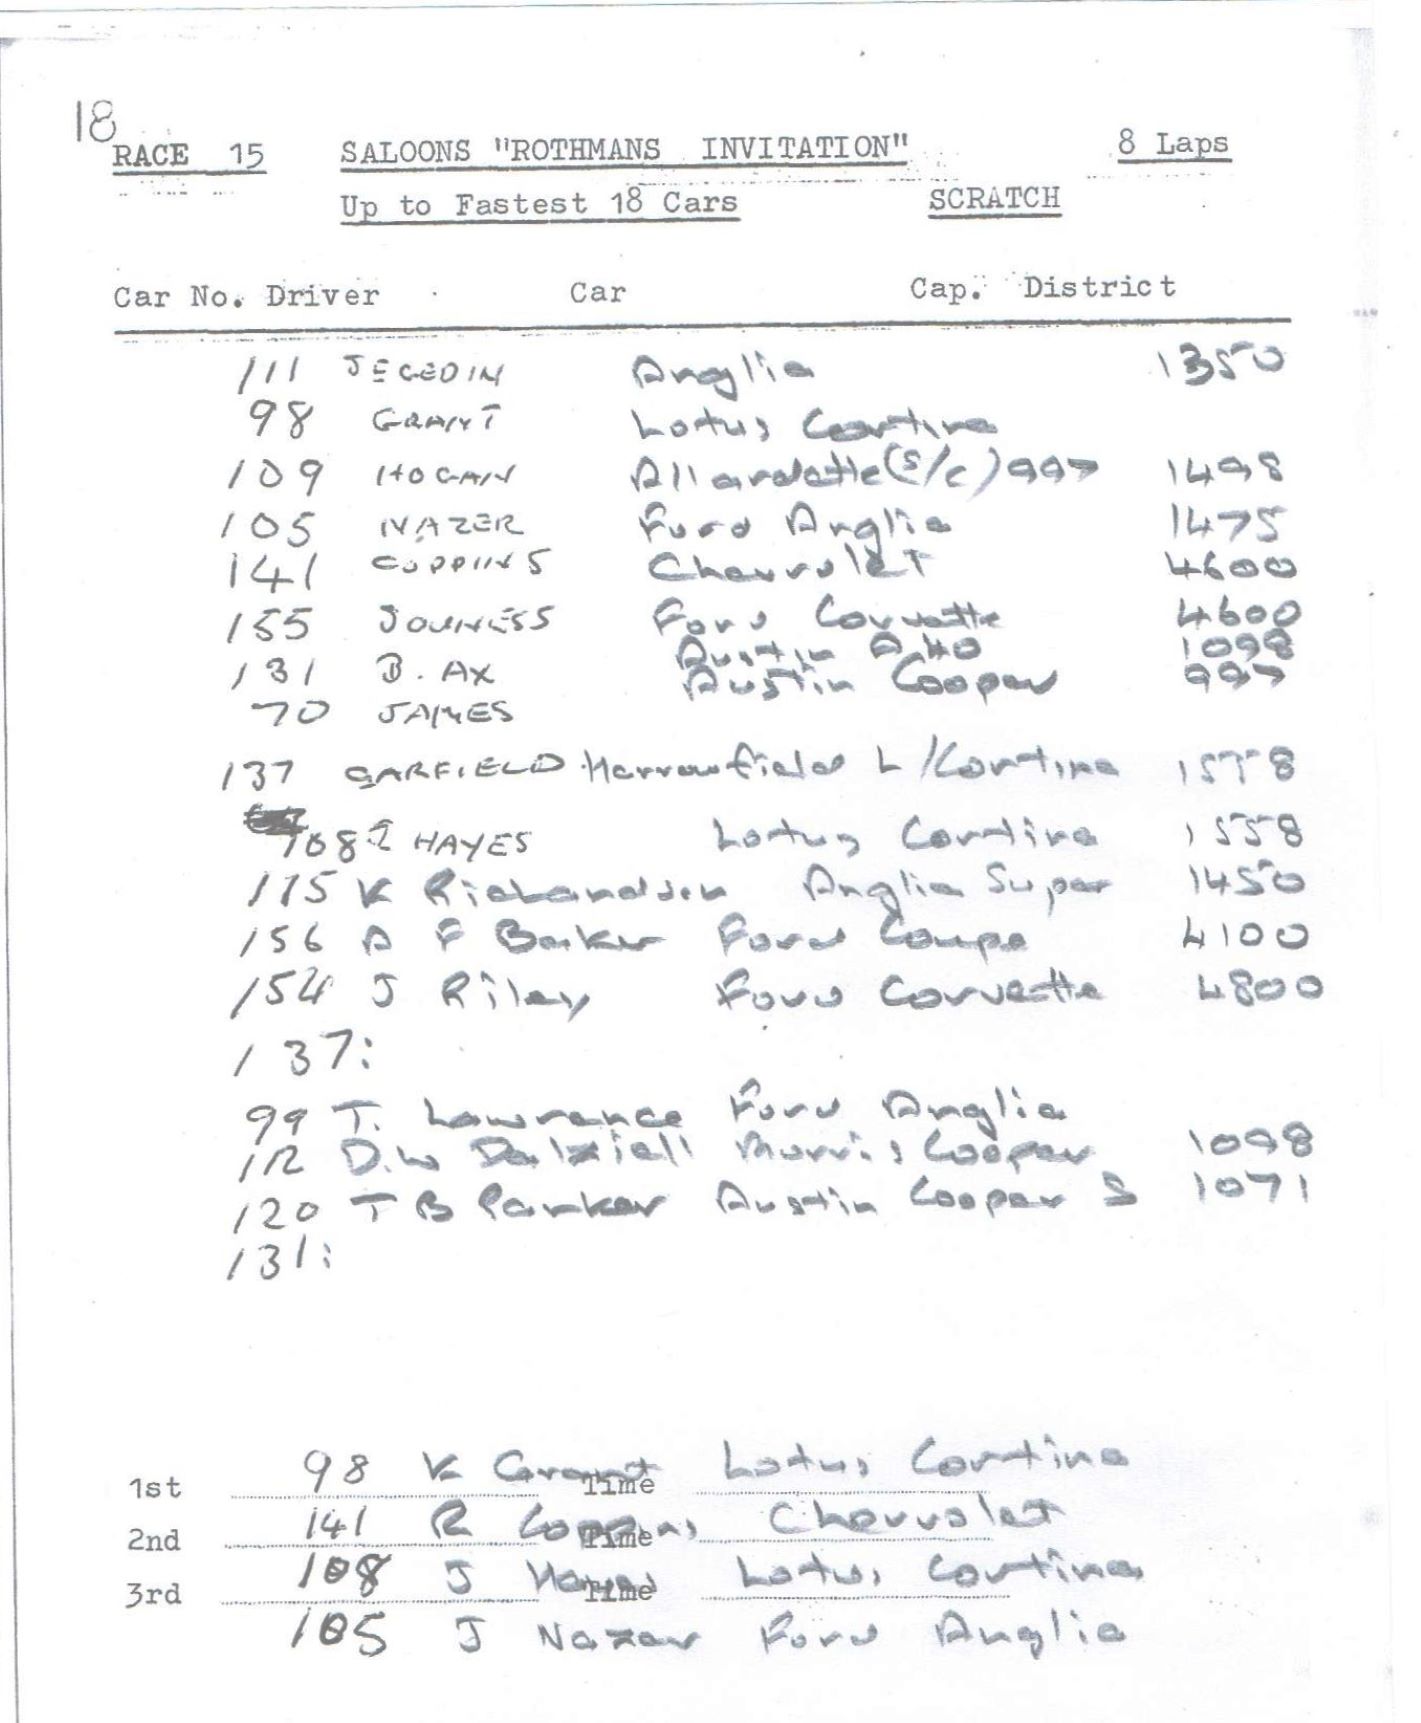 18
RACE 15 SALOONS "ROTHMANS INVITATION" 8 Laps
Up to Fastest 18 Cars SCRATCH
Car No. Driver Car Cap. District
111 JEGEDIN Anglia 1350
98 GRANT Lotus Cortina
109 HOGAN Allardette (s/c) 997 1498
105 NAZER Ford Anglia 1475
141 COPPINS Chevrolet 4600
155 JOUNESS Ford Corvette 4600
Austin A.40 1098
131 B. AX Austin Cooper 997
70 JAMES
137 GARFIELD Harrowfield L/Cortina 1558
108 J HAYES Lotus Cortina 1558
115 K Richardson Anglia Super 1450
156 A F Barker Ford Coupe 4100
154 J Riley Ford Corvette 4800
137:
99 T. Lawrence Ford Anglia
112 D.W Dalziell Morris Cooper 1098
120 T B Parker Austin Cooper S 1071
131:
1st 98 K Grant Time Lotus Cortina
2nd 141 R Coppins Time Chevrolet
3rd 108 J Hayes Time Lotus Cortina
105 J Nazer Ford Anglia